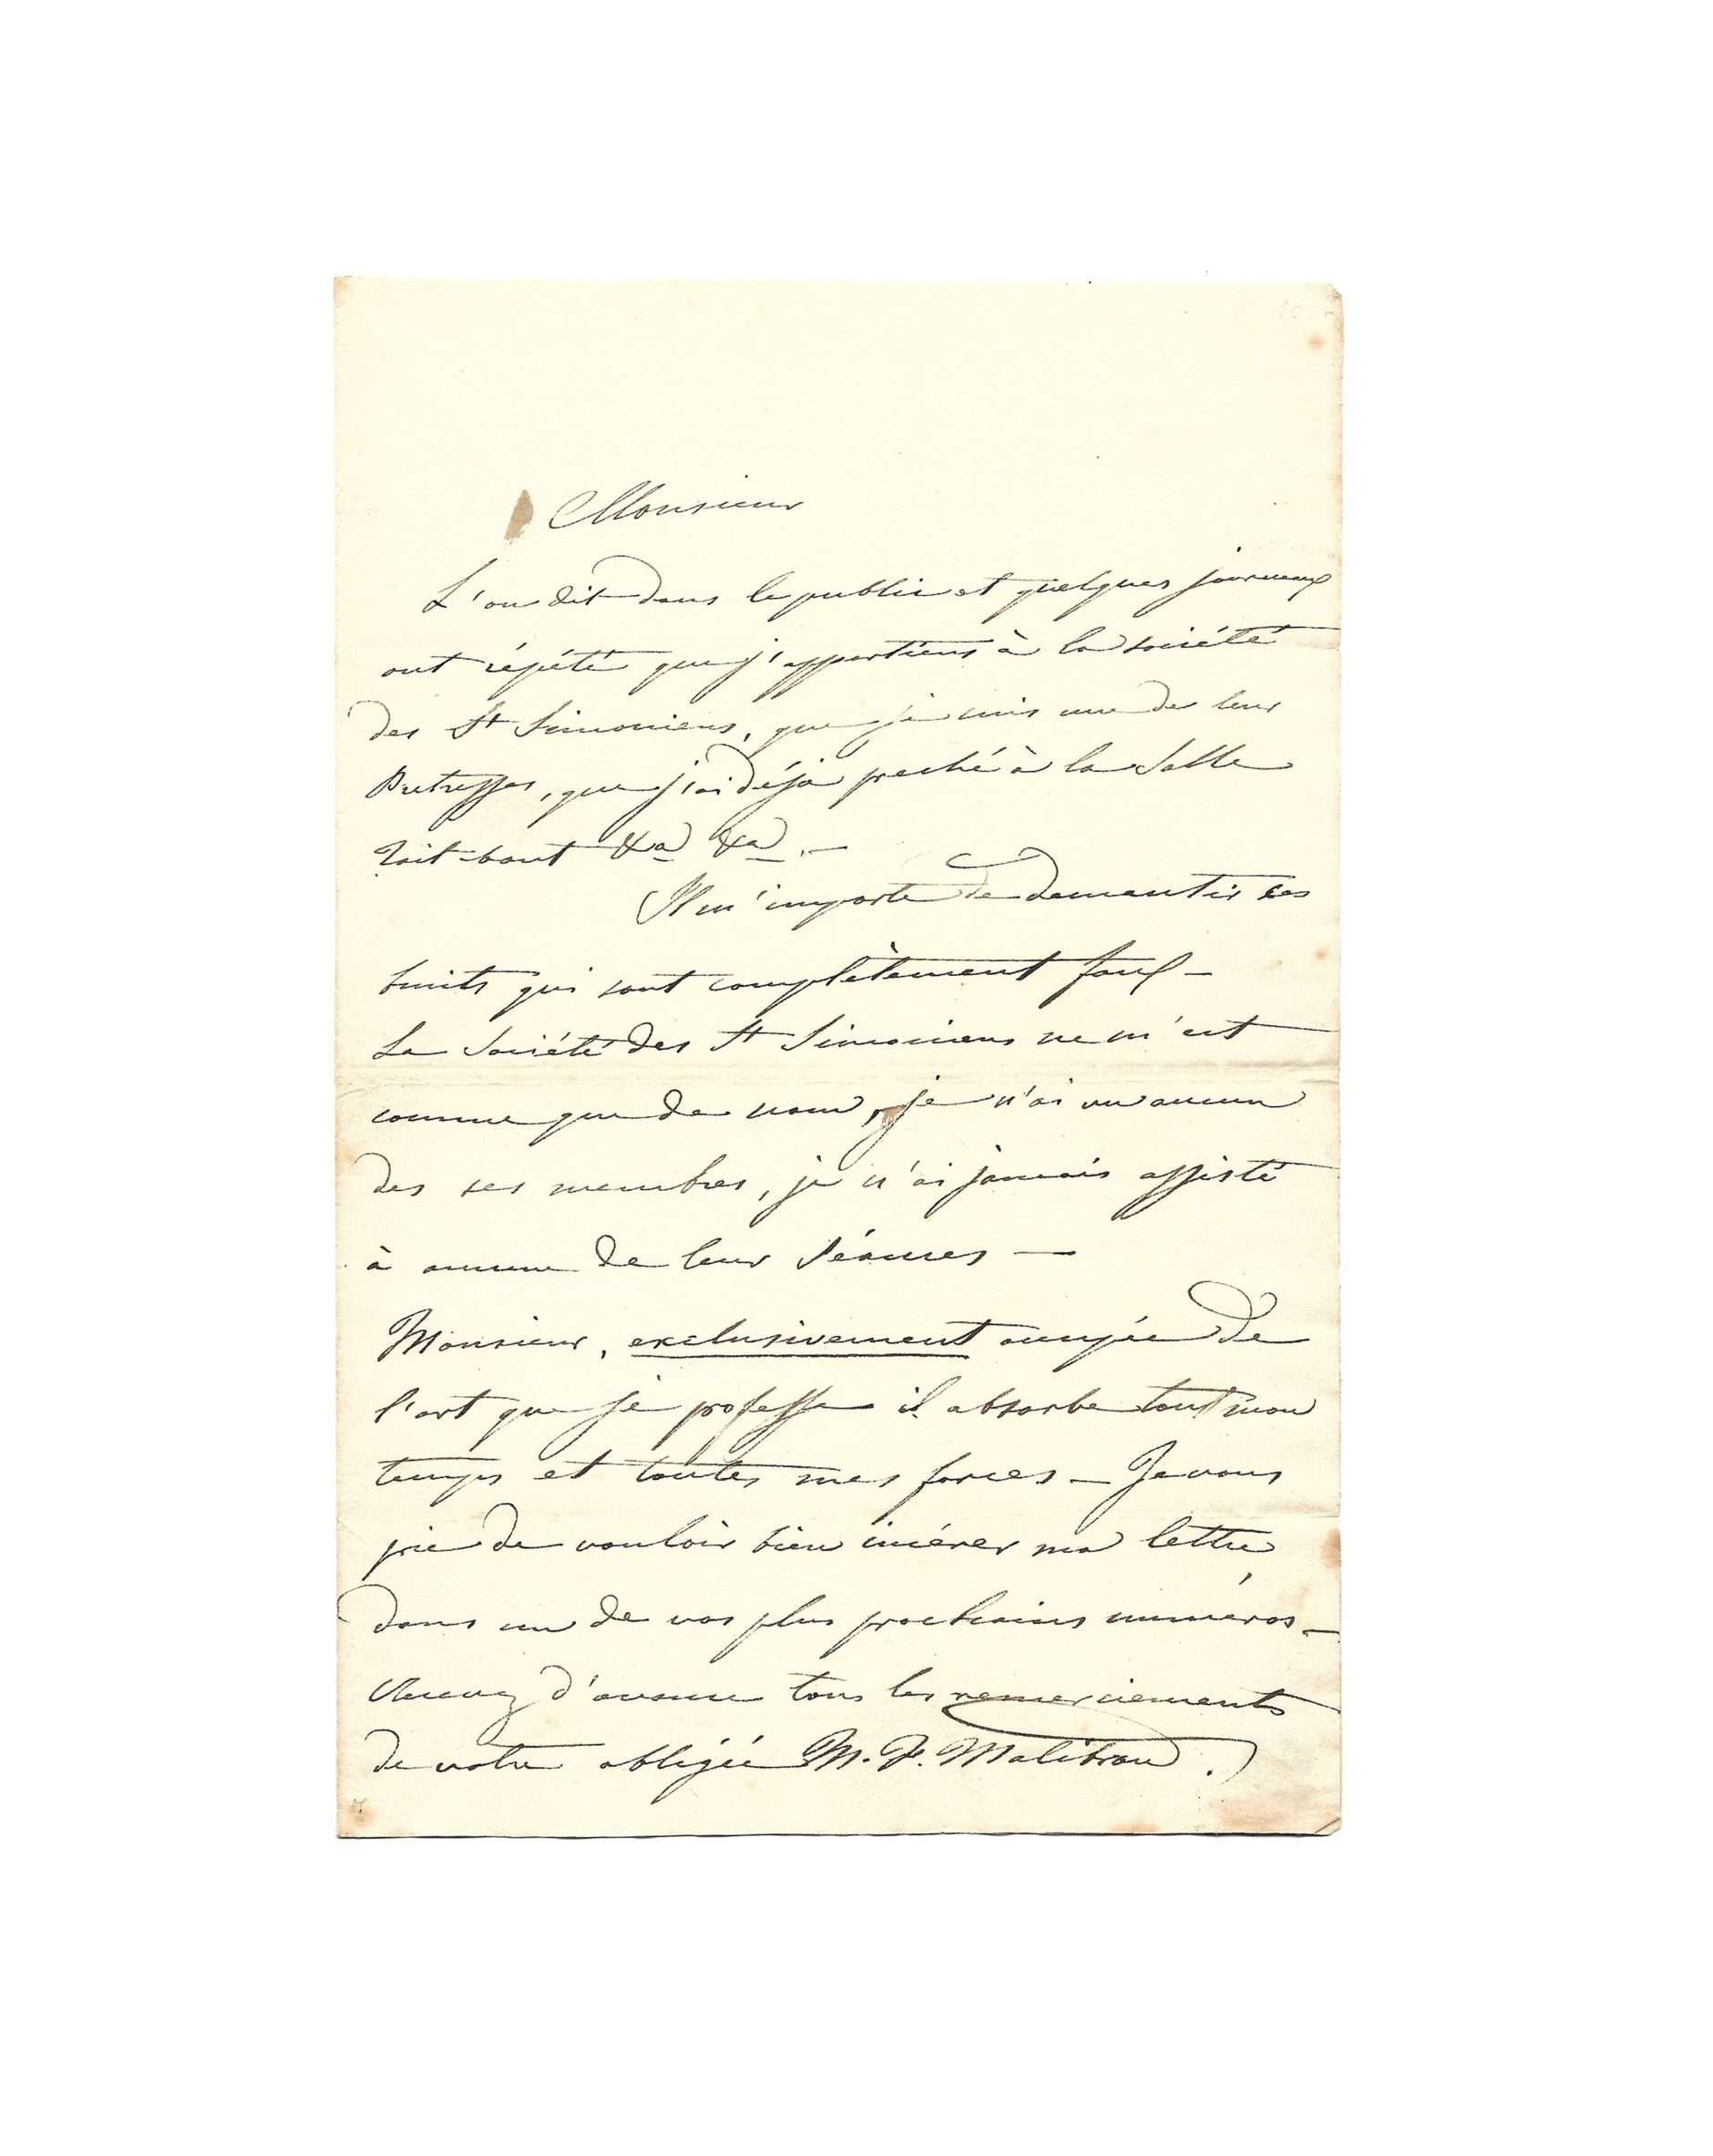 Monsieur
L'on dit dans le public et quelques journaux
ont répété que j'appartiens à la société
des St Simoniens, que je suis une de leur
Pretresses, que j'ai déja preché à la Salle
Tait-bout &a &a. —
Il m'importe de dementir ces
bruits qui sont complètement faux —
La Société des St Simoniens ne m'est
connue que de nom, je n'ai vu aucun
des ses membres, je n'ai jamais assisté
à aucune de leur Séances —
Monsieur, exclusivement occupée de
l'art que je professe il absorbe tout mon
temps et toutes mes forces — Je vous
prie de vouloir bien insérer ma lettre
dans un de vos plus prochains numéros —
Recevez d'avance tous les remerciements
de votre obligée M. F. Malibran.